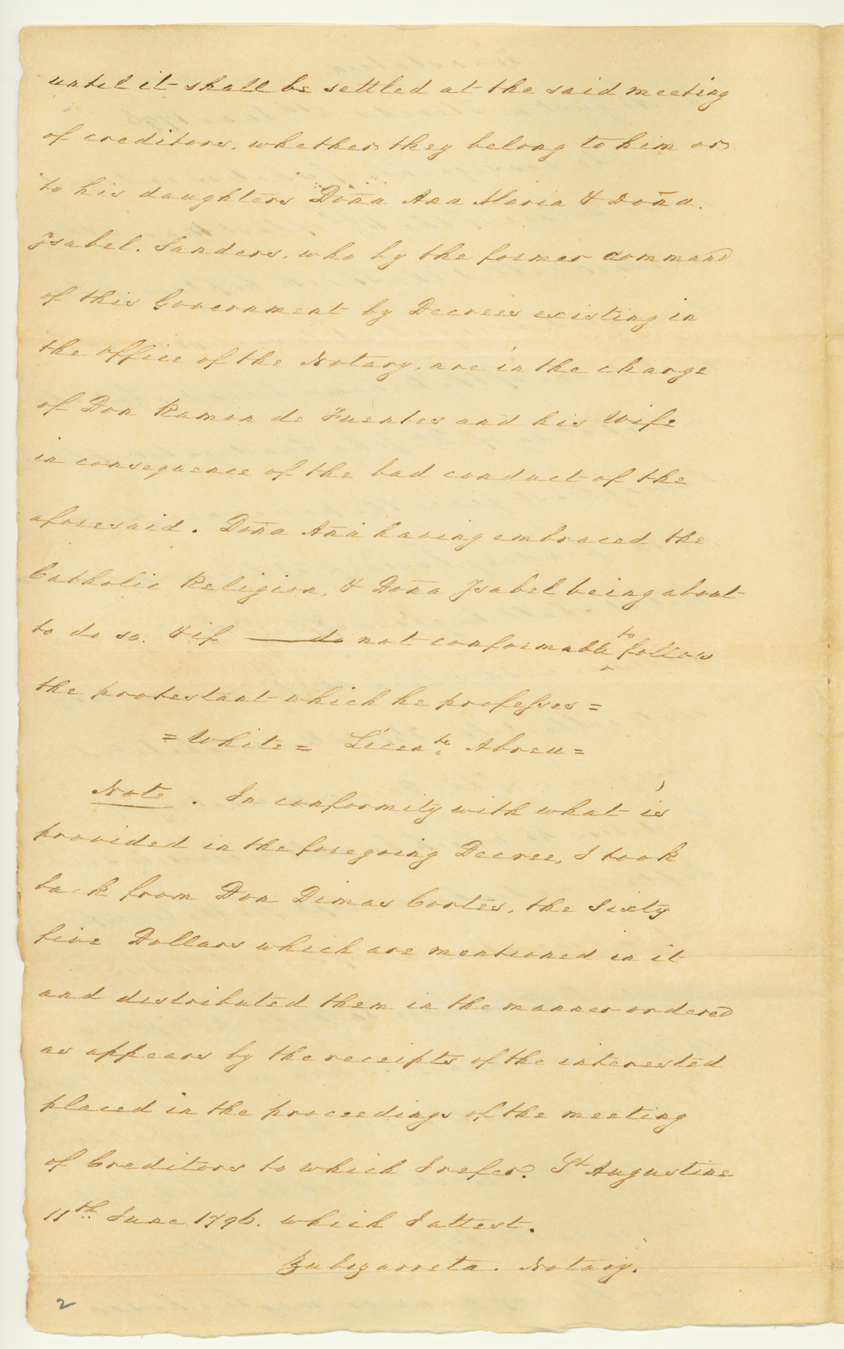 until it shall be settled at the said meeting
of creditors, whether they belong to him or
to his daughters Doña Ana Maria & Doña
Ysabel Sanders, who by the former command
of this Government by Decrees existing in
the office of the Notary, are in the charge
of Don Ramon de Fuentes and his Wife
in consequence of the bad conduct of the
aforesaid. Doña Ana having embraced the
Catholic Religion, & Doña Ysabel being about
to do so. & if —— do not conformable to follow
the protestant which he professes =
= White = Licen.te Abreu =
Note. In conformity with what is
provided in the foregoing Decree, I took
back from Don Dimas Cortes, the Sixty
five Dollars which are mentioned in it
and distributed them in the manner ordered
as appears by the receipts of the interested
placed in the proceedings of the meeting
of Creditors to which I refer. St Augustine
11th June 1796. which I attest.
Zubizarreta. Notary.
2